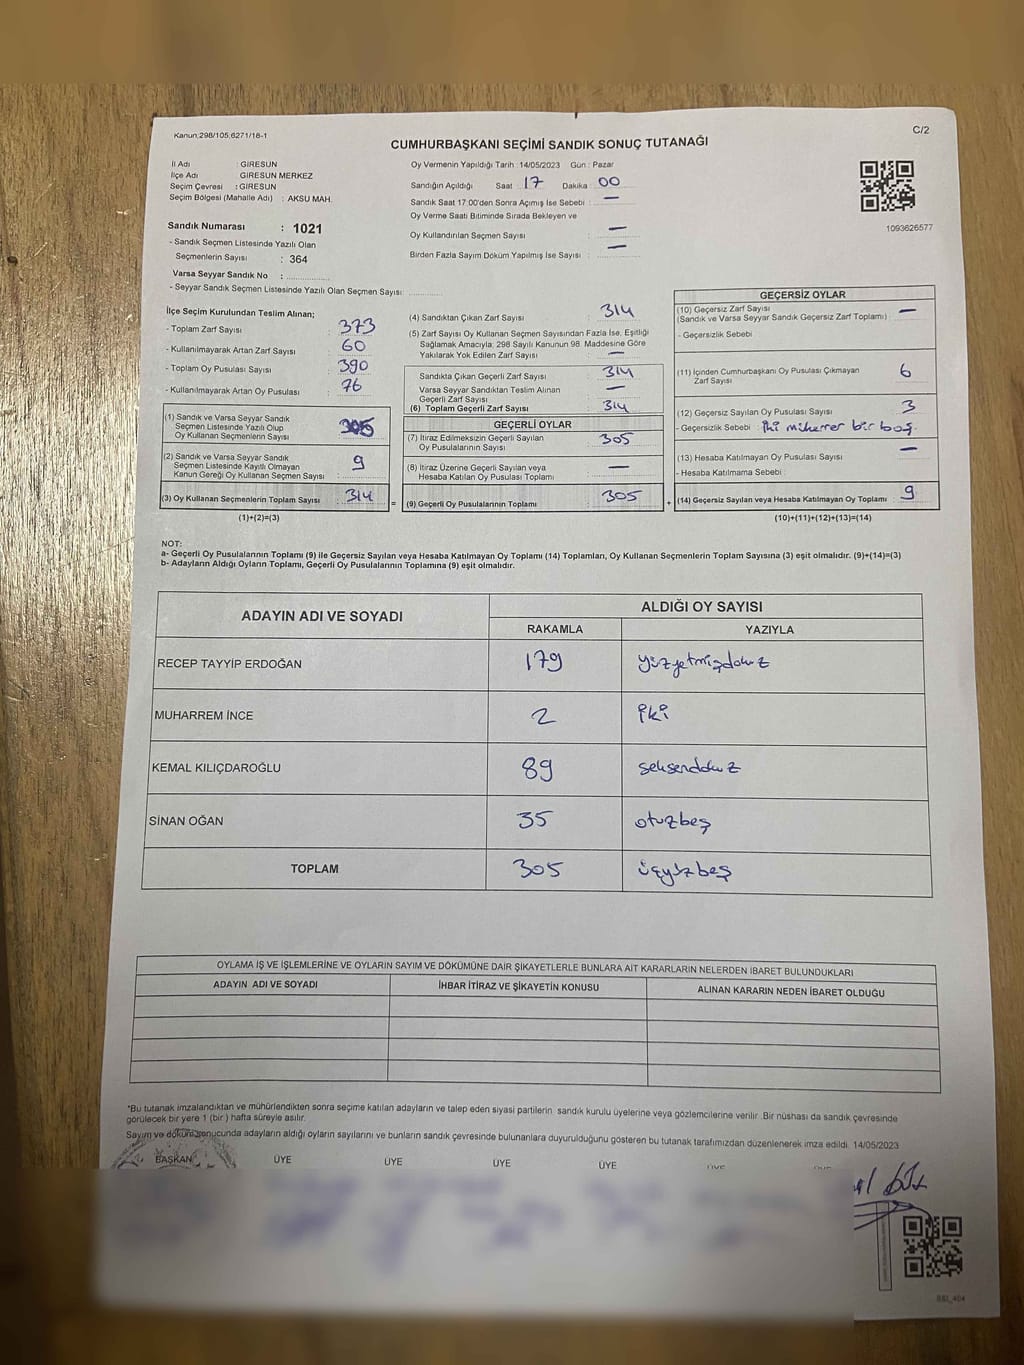 Kanun;298/105,6271/18-1
C/2
CUMHURBAŞKANI SEÇİMİ SANDIK SONUÇ TUTANAĞI
İl Adı : GİRESUN
İlçe Adı GİRESUN MERKEZ
Seçim Çevresi : GİRESUN
Seçim Bölgesi (Mahalle Adı) : AKSU MAH.
Sandık Numarası : 1021
- Sandık Seçmen Listesinde Yazılı Olan
Seçmenlerin Sayısı : 364
Varsa Seyyar Sandık No :
- Seyyar Sandık Seçmen Listesinde Yazılı Olan Seçmen Sayısı:
Oy Vermenin Yapıldığı Tarih :14/05/2023 Gün : Pazar
Sandığın Açıldığı Saat 17 Dakika 00
Sandık Saat 17:00'den Sonra Açılmış İse Sebebi : —
Oy Verme Saati Bitiminde Sırada Bekleyen ve
Oy Kullandırılan Seçmen Sayısı : —
Birden Fazla Sayım Döküm Yapılmış İse Sayısı : —
1093626577
İlçe Seçim Kurulundan Teslim Alınan;
- Toplam Zarf Sayısı : 373
- Kullanılmayarak Artan Zarf Sayısı : 60
- Toplam Oy Pusulası Sayısı : 390
- Kullanılmayarak Artan Oy Pusulası : 76
(1) Sandık ve Varsa Seyyar Sandık
Seçmen Listesinde Yazılı Olup
Oy Kullanan Seçmenlerin Sayısı : 305
(2) Sandık ve Varsa Seyyar Sandık
Seçmen Listesinde Kayıtlı Olmayan
Kanun Gereği Oy Kullanan Seçmen Sayısı : 9
(3) Oy Kullanan Seçmenlerin Toplam Sayısı : 314 =
(1)+(2)=(3)
(4) Sandıktan Çıkan Zarf Sayısı : 314
(5) Zarf Sayısı Oy Kullanan Seçmen Sayısından Fazla İse, Eşitliği
Sağlamak Amacıyla; 298 Sayılı Kanunun 98. Maddesine Göre
Yakılarak Yok Edilen Zarf Sayısı : —
Sandıkta Çıkan Geçerli Zarf Sayısı : 314
Varsa Seyyar Sandıktan Teslim Alınan
Geçerli Zarf Sayısı : —
(6) Toplam Geçerli Zarf Sayısı : 314
GEÇERLİ OYLAR
(7) İtiraz Edilmeksizin Geçerli Sayılan
Oy Pusulalarının Sayısı : 305
(8) İtiraz Üzerine Geçerli Sayılan veya
Hesaba Katılan Oy Pusulası Toplamı : —
(9) Geçerli Oy Pusulalarının Toplamı : 305 +
GEÇERSİZ OYLAR
(10) Geçersiz Zarf Sayısı : —
(Sandık ve Varsa Seyyar Sandık Geçersiz Zarf Toplamı)
- Geçersizlik Sebebi :
(11) İçinden Cumhurbaşkanı Oy Pusulası Çıkmayan
Zarf Sayısı : 6
(12) Geçersiz Sayılan Oy Pusulası Sayısı : 3
- Geçersizlik Sebebi : iki mükerrer bir boş.
(13) Hesaba Katılmayan Oy Pusulası Sayısı : —
- Hesaba Katılmama Sebebi :
(14) Geçersiz Sayılan veya Hesaba Katılmayan Oy Toplamı : 9
(10)+(11)+(12)+(13)=(14)
NOT:
a- Geçerli Oy Pusulalarının Toplamı (9) ile Geçersiz Sayılan veya Hesaba Katılmayan Oy Toplamı (14) Toplamları, Oy Kullanan Seçmenlerin Toplam Sayısına (3) eşit olmalıdır. (9)+(14)=(3)
b- Adayların Aldığı Oyların Toplamı, Geçerli Oy Pusulalarının Toplamına (9) eşit olmalıdır.
ADAYIN ADI VE SOYADI ALDIĞI OY SAYISI
RAKAMLA YAZIYLA
RECEP TAYYİP ERDOĞAN 179 yüzyetmişdokuz
MUHARREM İNCE 2 iki
KEMAL KILIÇDAROĞLU 89 seksendokuz
SİNAN OĞAN 35 otuzbeş
TOPLAM 305 üçyüzbeş
OYLAMA İŞ VE İŞLEMLERİNE VE OYLARIN SAYIM VE DÖKÜMÜNE DAİR ŞİKAYETLERLE BUNLARA AİT KARARLARIN NELERDEN İBARET BULUNDUKLARI
ADAYIN ADI VE SOYADI İHBAR İTİRAZ VE ŞİKAYETİN KONUSU ALINAN KARARIN NEDEN İBARET OLDUĞU
*Bu tutanak imzalandıktan ve mühürlendikten sonra seçime katılan adayların ve talep eden siyasi partilerin sandık kurulu üyelerine veya gözlemcilerine verilir. Bir nüshası da sandık çevresinde
görülecek bir yere 1 (bir ) hafta süreyle asılır.
Sayım ve döküm sonucunda adayların aldığı oyların sayılarını ve bunların sandık çevresinde bulunanlara duyurulduğunu gösteren bu tutanak tarafımızdan düzenlenerek imza edildi. 14/05/2023
BAŞKAN ÜYE ÜYE ÜYE ÜYE